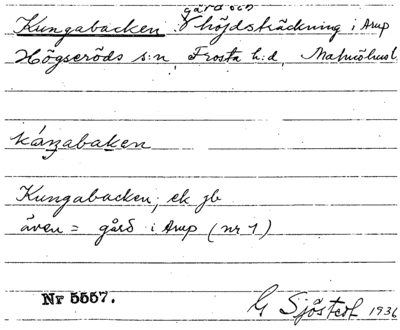 Kungabacken gård och höjdsträckning i Arup
Högseröds s:n, Frosta h:d, Malmöhus l.
káŋabakɐn
Kungabacken, ek jb
även = gård i Arup (nr 1)
Nr 5557.
G Sjöstedt 1936